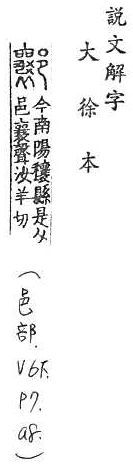 說文解字
大徐本
今南陽穰縣是从
邑襄聲汝羊切
(邑部.V6下.P7.a8.)